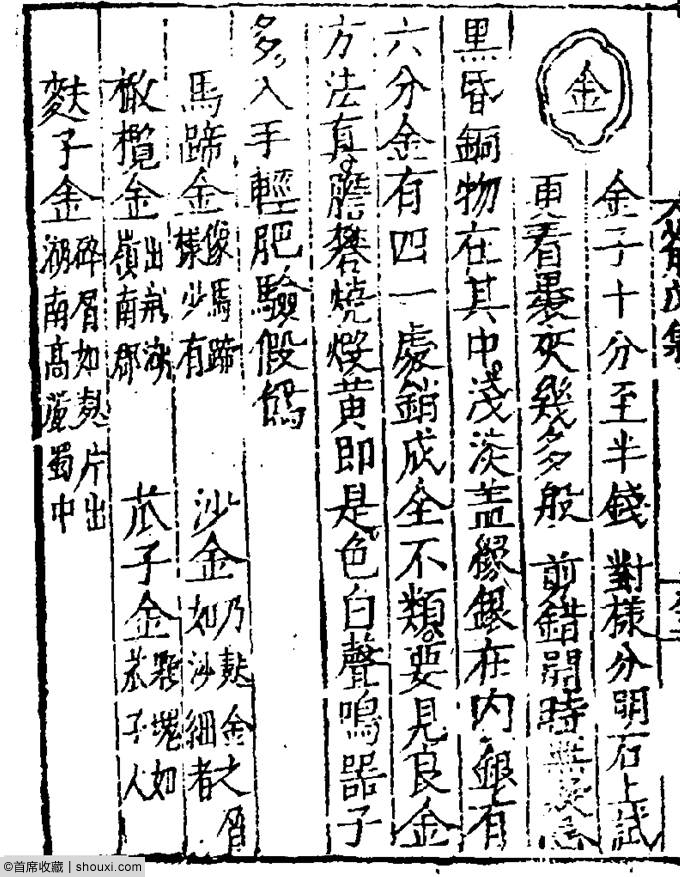 金
金子十分至半錢 對樣分明石上試
更看裹夾幾多般 剪錯開時無疑惑
黑昏銅物在其中淺淡蓋緣銀在内銀有
六分金有四一處銷成全不類要見良金
方法真膽礬燒焌黄即是色白聲鳴器子
多入手輕肥驗假偽
馬蹄金 像馬蹄樣少有 沙金 乃麩金之屑如沙細者
橄欖金 出荆湖嶺南郡 瓜子金 顆塊如瓜子人
麩子金 碎屑如麩片出湖南高藘蜀中
©首席收藏 | shouxi.com